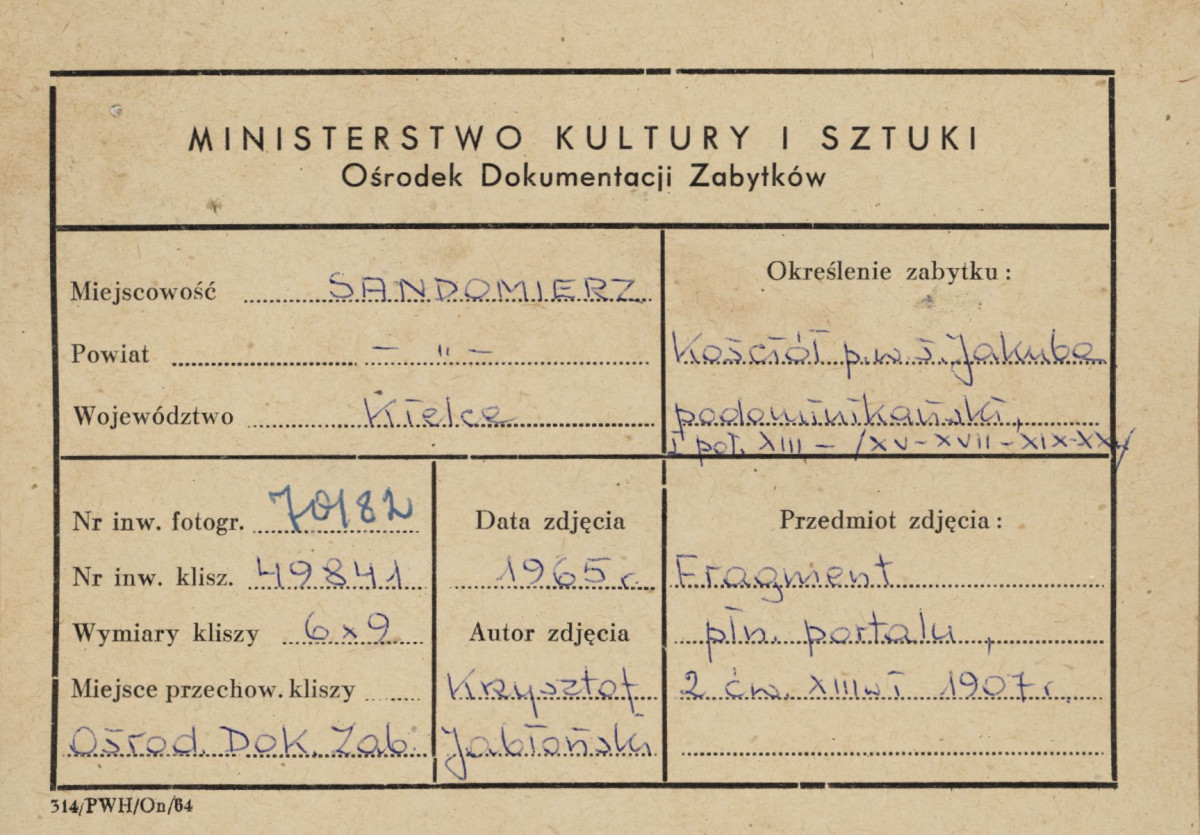 MINISTERSTWO KULTURY I SZTUKI
Ośrodek Dokumentacji Zabytków
Miejscowość SANDOMIERZ
Powiat — " —
Województwo Kielce
Określenie zabytku:
Kościół p.w ś. Jakuba
podominikański,
I poł. XIII – /XV-XVII-XIX-XX/
Nr inw. fotogr. 70182
Nr inw. klisz. 49841
Wymiary kliszy 6x9
Miejsce przechow. kliszy
Ośrod. Dok. Zab.
Data zdjęcia
1965 r.
Autor zdjęcia
Krzysztof
Jabłoński
Przedmiot zdjęcia:
Fragment
płn. portalu,
2 ćw. XIII w i 1907 r.
314/PWH/On/64